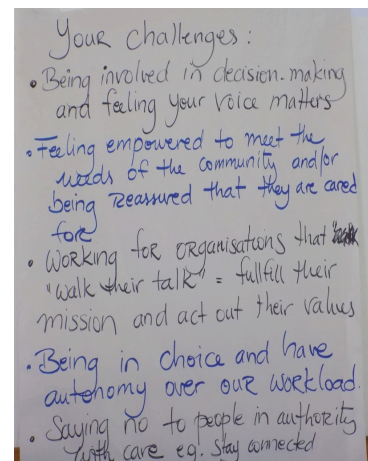 Your challenges:
• Being involved in decision-making
and feeling your voice matters
• Feeling empowered to meet the
needs of the community and/or
being reassured that they are cared
fore
• Working for organisations that
"walk their talk" = fullfill their
mission and act out their values
• Being in choice and have
autonomy over our workload.
• Saying no to people in authority
with care eg. stay connected